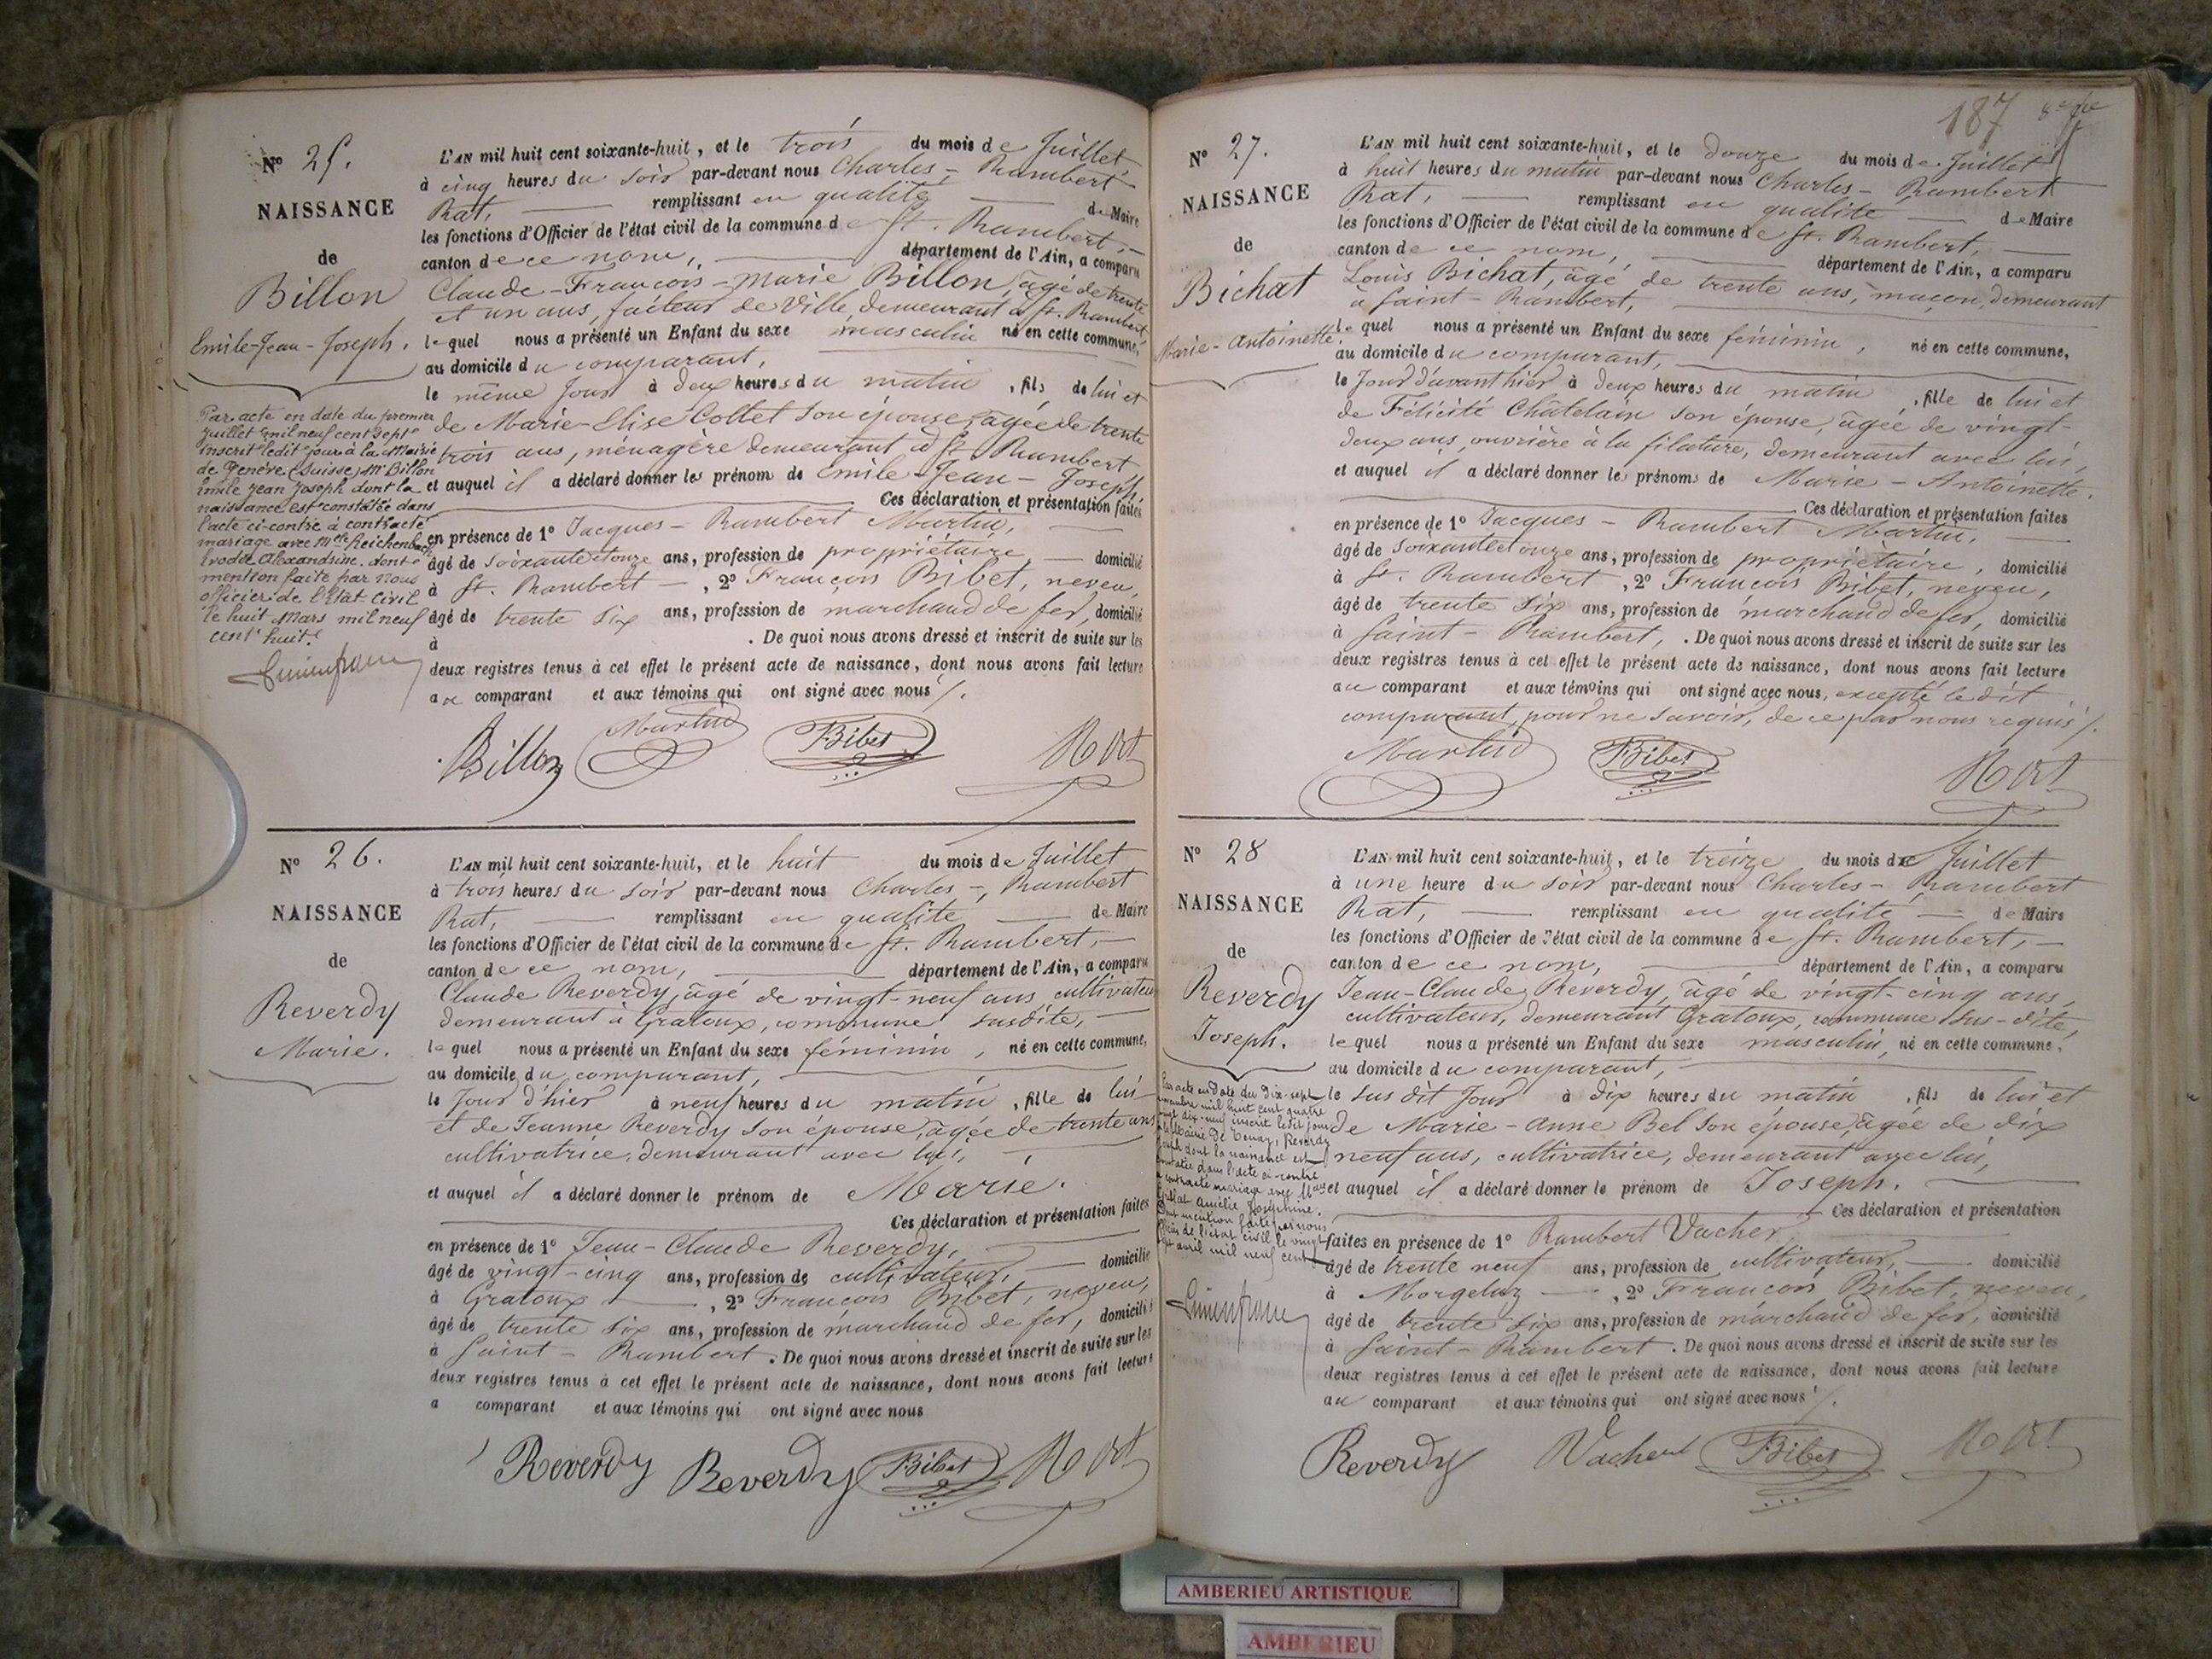 N° 25.
NAISSANCE
de
Billon
Emile-Jean-Joseph.
Par acte en date du premier
Juillet mil neuf cent sept
inscrit ledit jour à la Mairie
de Genève (Suisse) Mr Billon
Emile Jean Joseph dont la
naissance est constatée dans
l'acte ci-contre à contracté
mariage avec Melle Reichenbach
Alexandrine. dont
mention faite par nous
officier de l'Etat-Civil
le huit Mars mil neuf
cent huit
L'AN mil huit cent soixante-huit, et le trois du mois de Juillet
à cinq heures du soir par-devant nous Charles-Rambert
Rat, remplissant en qualité de Maire
les fonctions d'Officier de l'état civil de la commune de St. Rambert,
canton de ce nom, département de l'Ain, a comparu
Claude-François-Marie Billon, âgé de trente
et un ans, facteur de Ville, demeurant à St. Rambert
lequel nous a présenté un Enfant du sexe masculin né en cette commune,
au domicile du comparant,
le même jour à deux heures du matin, fils de lui et
de Marie-Elise Collet son épouse, âgée de trente
trois ans, ménagère demeurant à St. Rambert
et auquel il a déclaré donner les prénom de Emile-Jean-Joseph.
Ces déclaration et présentation faites
en présence de 1° Jacques-Rambert Martin,
âgé de soixante et onze ans, profession de propriétaire domicilié
à St. Rambert, 2° François Bibet, neveu,
âgé de trente six ans, profession de marchand de fer, domicilié
à . De quoi nous avons dressé et inscrit de suite sur les
deux registres tenus à cet effet le présent acte de naissance, dont nous avons fait lecture
au comparant et aux témoins qui ont signé avec nous /.
Billon Martin Bibet Rat
N° 26.
NAISSANCE
de
Reverdy
Marie.
L'AN mil huit cent soixante-huit, et le huit du mois de Juillet
à trois heures du soir par-devant nous Charles-Rambert
Rat, remplissant en qualité de Maire
les fonctions d'Officier de l'état civil de la commune de St. Rambert,
canton de ce nom, département de l'Ain, a comparu
Claude Reverdy, âgé de vingt-neuf ans cultivateur
demeurant à Gratoux, commune susdite,
lequel nous a présenté un Enfant du sexe féminin, né en cette commune,
au domicile du comparant,
le Jour d'hier à neuf heures du matin, fille de lui
et de Jeanne Reverdy son épouse, âgée de trente ans
cultivatrice, demeurant avec lui,
et auquel il a déclaré donner le prénom de Marie.
Ces déclaration et présentation faites
en présence de 1° Jean-Claude Reverdy,
âgé de vingt-cinq ans, profession de cultivateur, domicilié
à Gratoux, 2° François Bibet, neveu,
âgé de trente six ans, profession de marchand de fer, domicilié
à Saint-Rambert. De quoi nous avons dressé et inscrit de suite sur les
deux registres tenus à cet effet le présent acte de naissance, dont nous avons fait lecture
a comparant et aux témoins qui ont signé avec nous
Reverdy Reverdy Bibet Rat
187
N° 27.
NAISSANCE
de
Bichat
Marie-Antoinette.
L'AN mil huit cent soixante-huit, et le douze du mois de Juillet
à huit heures du matin par-devant nous Charles-Rambert
Rat, remplissant en qualité de Maire
les fonctions d'Officier de l'état civil de la commune de St. Rambert,
canton de ce nom, département de l'Ain, a comparu
Louis Bichat, âgé de trente ans, maçon, demeurant
à Saint-Rambert,
lequel nous a présenté un Enfant du sexe féminin, né en cette commune,
au domicile du comparant,
le Jour d'avant hier à deux heures du matin, fille de lui et
de Félicité Châtelain son épouse, âgée de vingt-
deux ans, ouvrière à la filature, demeurant avec lui,
et auquel il a déclaré donner les prénoms de Marie-Antoinette.
Ces déclaration et présentation faites
en présence de 1° Jacques-Rambert Martin,
âgé de soixante et onze ans, profession de propriétaire, domicilié
à St. Rambert, 2° François Bibet, neveu,
âgé de trente six ans, profession de marchand de fer, domicilié
à Saint-Rambert, . De quoi nous avons dressé et inscrit de suite sur les
deux registres tenus à cet effet le présent acte de naissance, dont nous avons fait lecture
au comparant et aux témoins qui ont signé avec nous, excepté le dit
comparant, pour ne savoir, de ce par nous requis /.
Martin Bibet Rat
N° 28
NAISSANCE
de
Reverdy
Joseph.
Par acte en date du Dix-sept
novembre mil huit cent quatre
vingt dix-neuf inscrit ledit jour
à la Mairie de Tenay, Reverdy
Joseph dont la naissance est
constatée dans l'acte ci-contre
a contracté mariage avec
Amélie Joséphine.
Dont mention faite par nous
officier de l'état civil le vingt
avril mil neuf cent
L'AN mil huit cent soixante-huit, et le treize du mois de Juillet
à une heure du soir par-devant nous Charles-Rambert
Rat, remplissant en qualité de Maire
les fonctions d'Officier de l'état civil de la commune de St. Rambert,
canton de ce nom, département de l'Ain, a comparu
Jean-Claude Reverdy, âgé de vingt-cinq ans,
cultivateur, demeurant Gratoux, commune sus-dite,
lequel nous a présenté un Enfant du sexe masculin, né en cette commune,
au domicile du comparant,
le sus dit Jour à dix heures du matin, fils de lui et
de Marie-Anne Bel son épouse, âgée de dix
neuf ans, cultivatrice, demeurant avec lui,
et auquel il a déclaré donner le prénom de Joseph.
Ces déclaration et présentation
faites en présence de 1° Rambert Vacher
âgé de trente neuf ans, profession de cultivateur, domicilié
à Morgeluz, 2° François Bibet, neveu,
âgé de trente six ans, profession de marchand de fer, domicilié
à Saint-Rambert. De quoi nous avons dressé et inscrit de suite sur les
deux registres tenus à cet effet le présent acte de naissance, dont nous avons fait lecture
au comparant et aux témoins qui ont signé avec nous /.
Reverdy Vacher Bibet Rat
AMBERIEU ARTISTIQUE
AMBERIEU